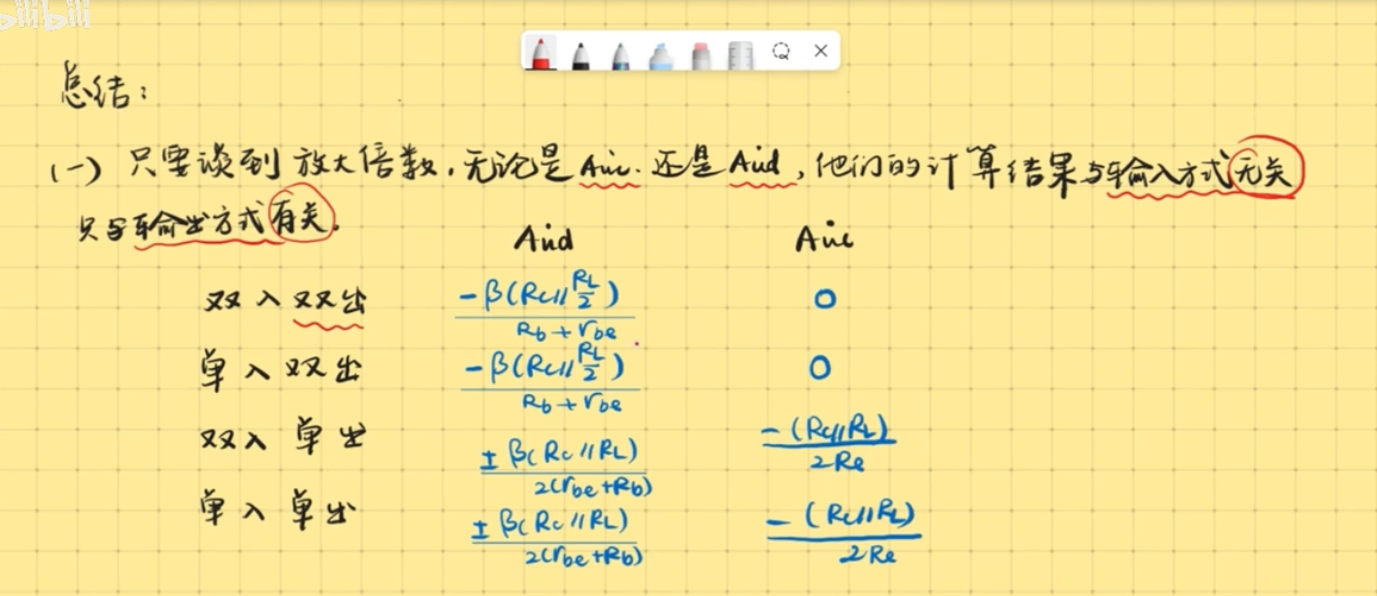 bilibili
总结：
(一) 只要谈到放大倍数，无论是Auc. 还是Aud，他们的计算结果与输入方式无关
只与输出方式有关。
Aud Auc
双入双出 -β(Rc// RL/2) / Rb+rbe 0
单入双出 -β(Rc// RL/2) / Rb+rbe 0
双入单出 ±β(Rc//RL) / 2(rbe+Rb) -(Rc//RL) / 2Re
单入单出 ±β(Rc//RL) / 2(rbe+Rb) -(Rc//RL) / 2Re